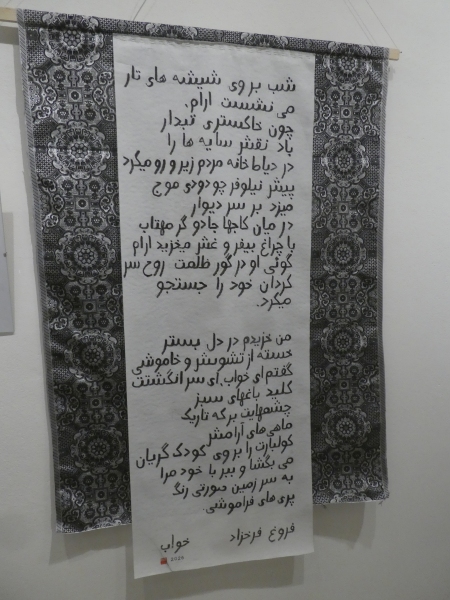 شب بر وی شیشه های تار
می نشست آرام.
چون خاکستری تبدار
باد نقش سایه ها را
در حیاط خانه مردم زیر و رو میکرد
پیش نیلوفر چو دودی موج
میزد بر سر دیوار
در میان کاجها جادو گر مهتاب
با چراغ بیفر و غش میخزید آرام
گوئی او در گور ظلمت روح سر
گردان خود را جستجو
میکرد.
من خزیدم در دل بستر
خسته از تشویش و خاموشی
گفتم ای خواب، ای سر انگشتت
کلید باغهای سبز
چشمهایت بر که تاریک
ماهی های آرامش
کولبارت را بر وی کودک گریان
می بگشا و ببر با خود مرا
به سر زمین صورتی رنگ
پری های فراموشی.
فروغ فرخزاد خواب
2025